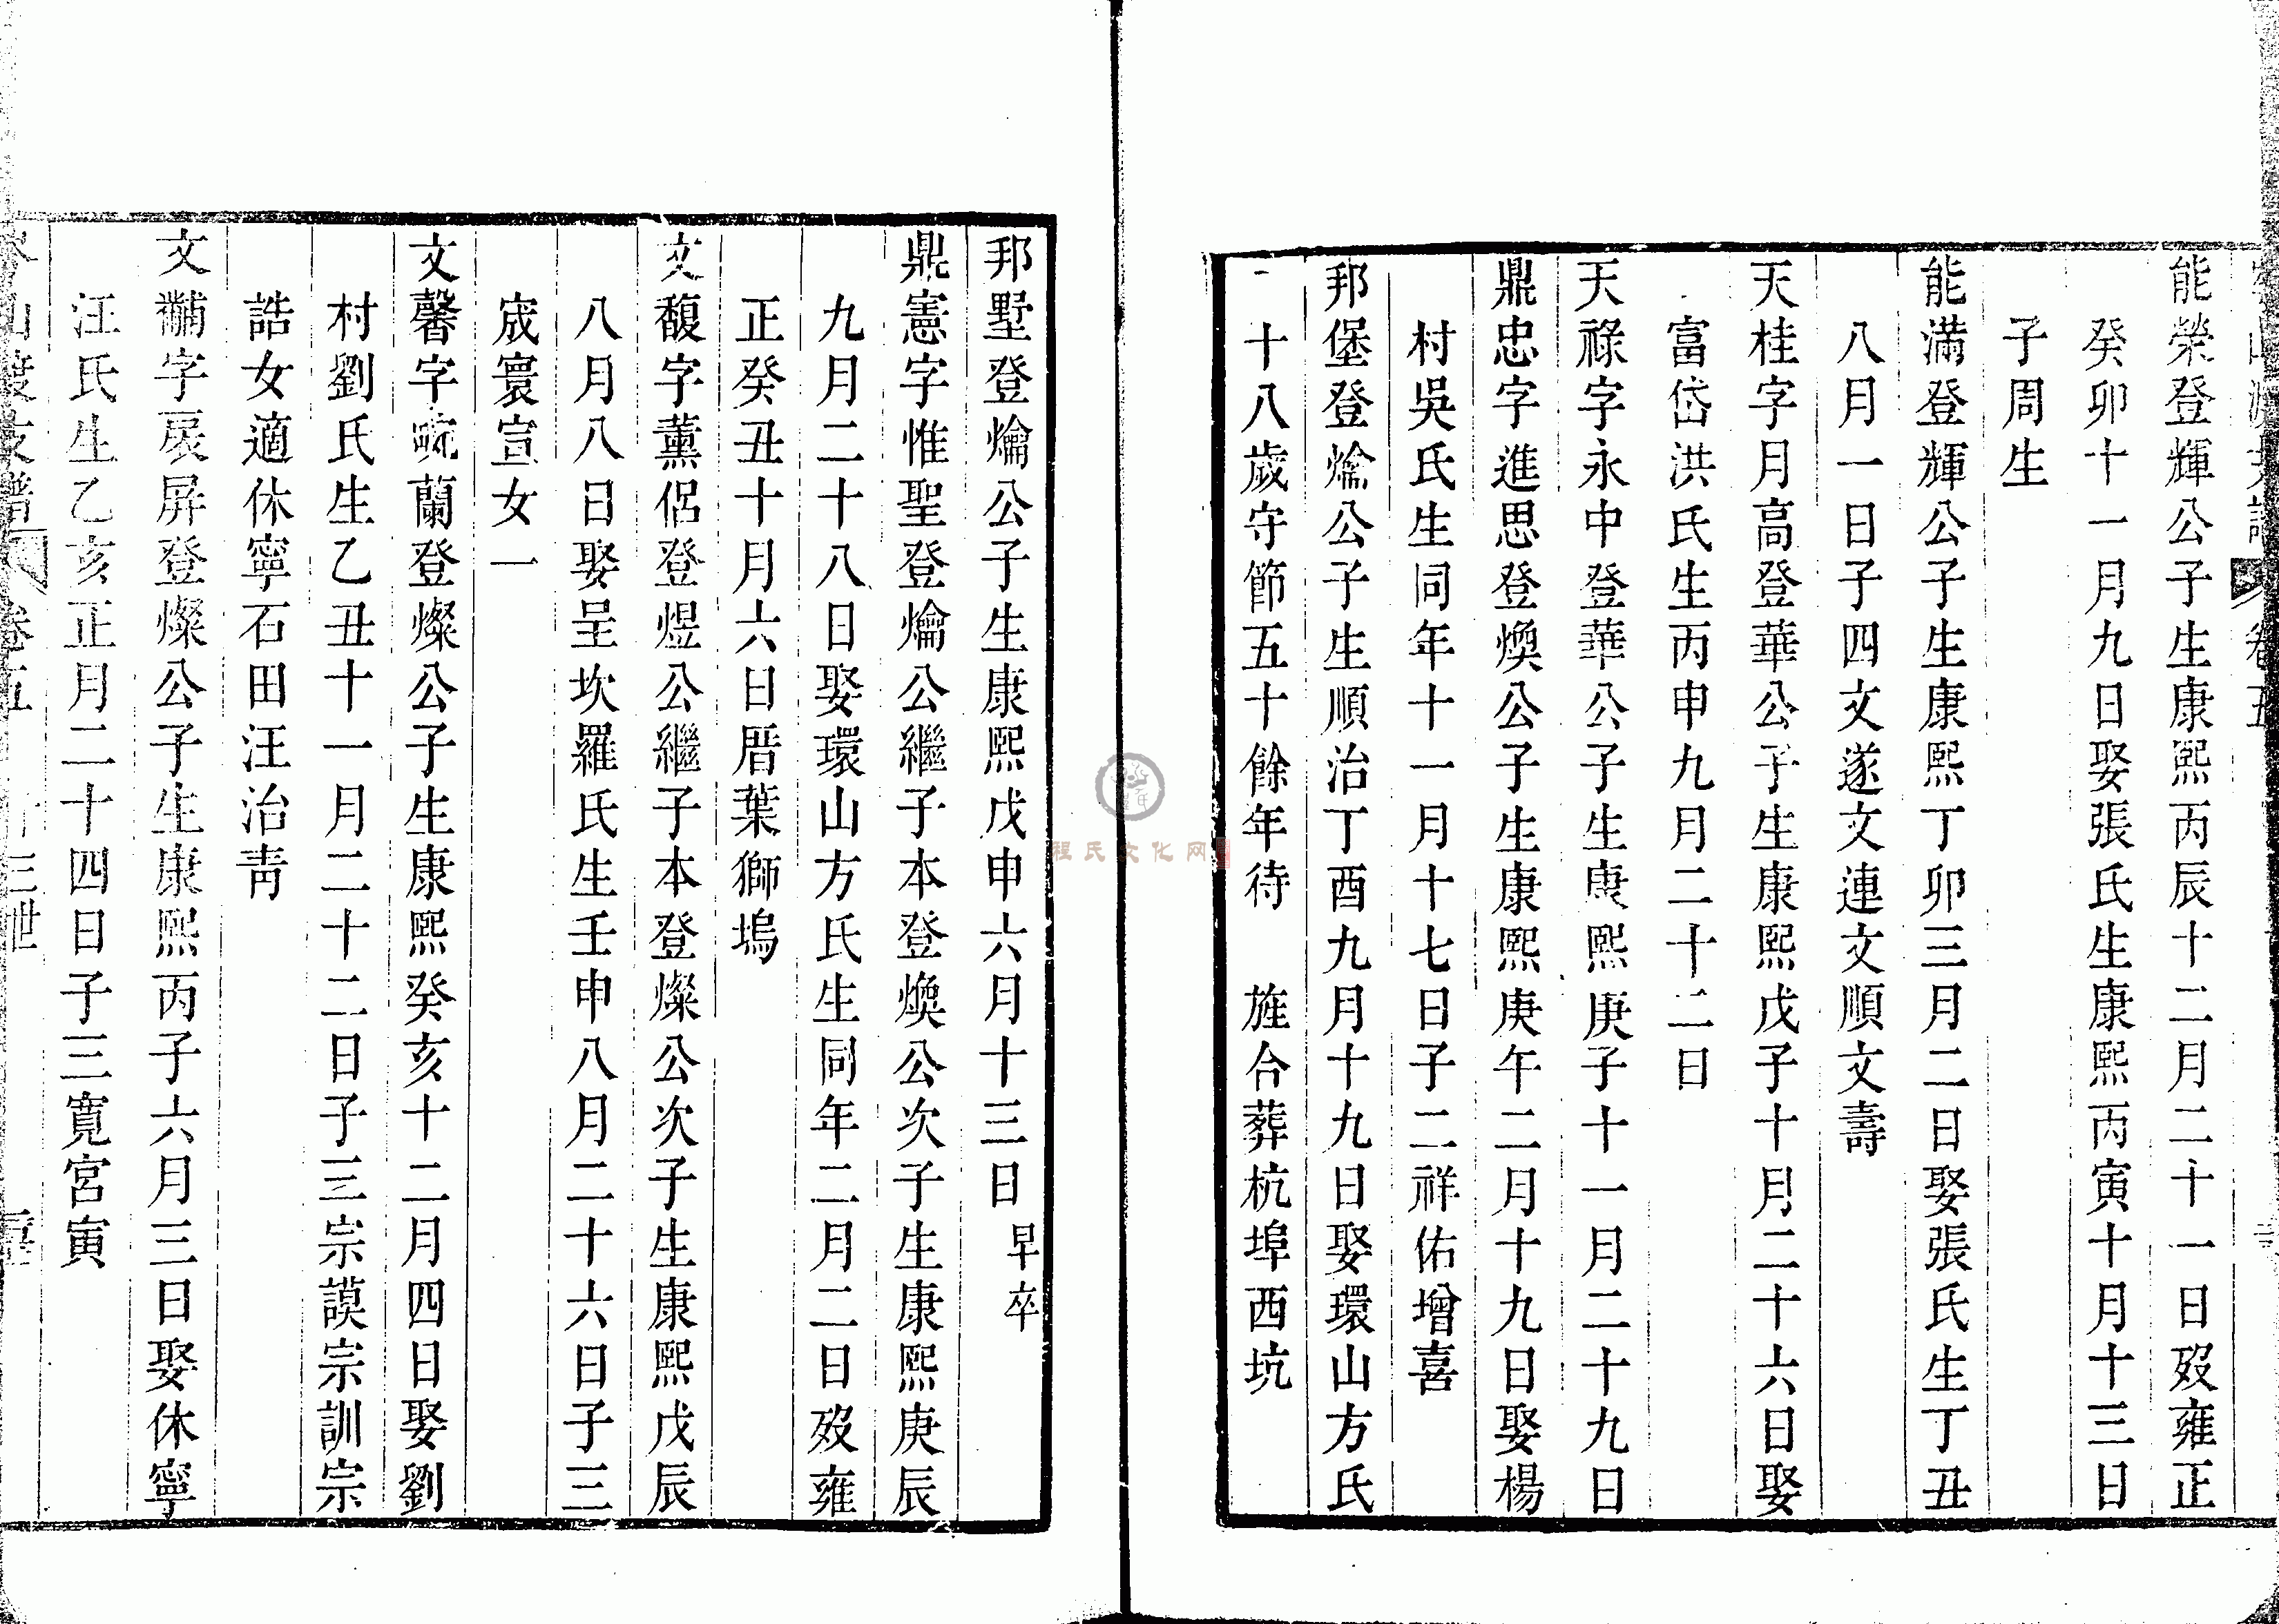 能榮登輝公子生康熙丙辰十二月二十一日歿雍正
癸卯十一月九日娶張氏生康熙丙寅十月十三日
子周生
能滿登輝公子生康熙丁卯三月二日娶張氏生丁丑
八月一日子四文遂文連文順文壽
天桂字月高登華公子生康熙戊子十月二十六日娶
富岱洪氏生丙申九月二十二日
天祿字永中登華公子生康熙庚子十一月二十九日
鼎忠字進思登煥公子生康熙庚午二月十九日娶楊
村吳氏生同年十一月十七日子二祥佑增喜
邦堡登爚公子生順治丁酉九月十九日娶環山方氏
十八歲守節五十餘年待 旌合葬杭埠西坑
邦墅登爚公子生康熙戊申六月十三日早卒
鼎憲字惟聖登爚公繼子本登煥公次子生康熙庚辰
九月二十八日娶環山方氏生同年二月二日歿雍
正癸丑十月六日厝葉獅塢
文馥字薰侶登煜公繼子本登燦公次子生康熙戊辰
八月八日娶呈坎羅氏生壬申八月二十六日子三
宬寰宣女一
文馨字畹蘭登燦公子生康熙癸亥十二月四日娶劉
村劉氏生乙丑十一月二十二日子三宗謨宗訓宗
誥女適休寧石田汪治靑
文黼字扆屏登燦公子生康熙丙子六月三日娶休寧
汪氏生乙亥正月二十四日子三寬宮寅
山渡支譜 卷五 三世
程氏文化网